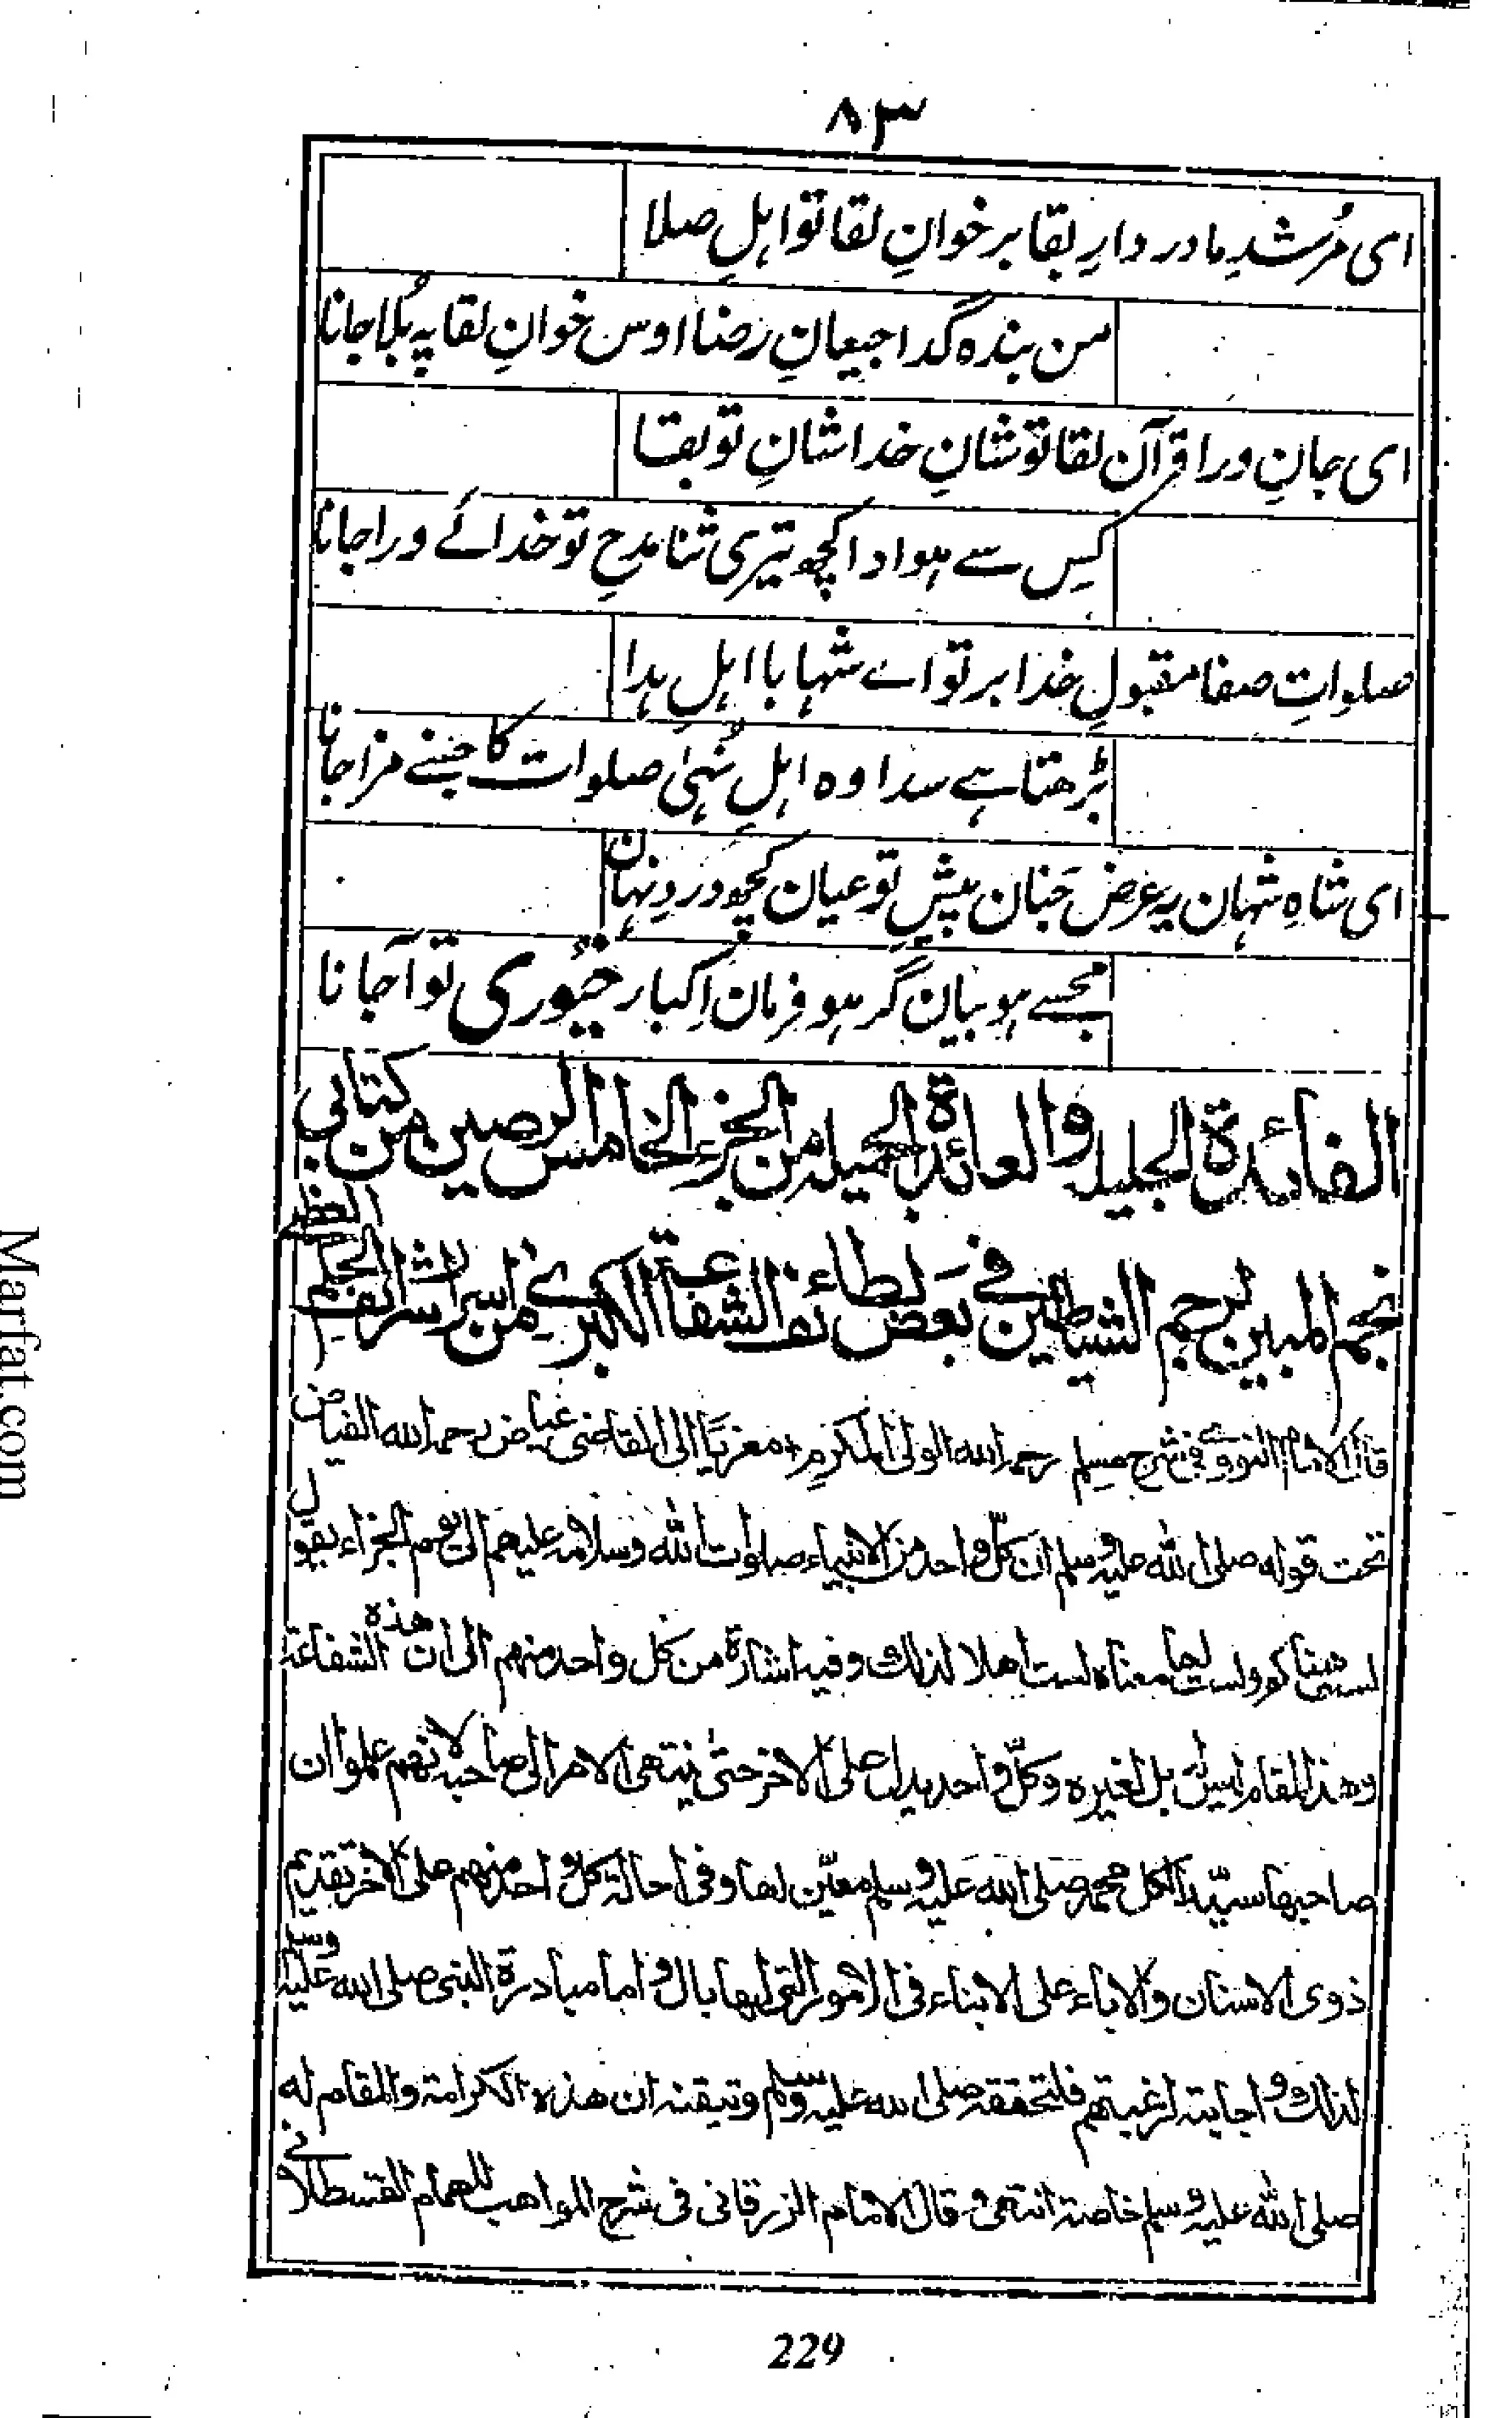 ۸۳
ای مُرشدِ ما در دارِ بقا بر خوانِ لقا تو اہلِ صلا
من بندہ گدا جیعانِ رضا اوس خوانِ لقا پہ بُلا جانا
ای جانِ ورا قرآن لقا تو شانِ خدا شانِ تو بقا
کِس سے ہو ادا کچھ تیری ثنا مدحِ تو خدائے ورا جانا
صلواتِ صفا مقبولِ خدا بر تو اے شہا با اہلِ ہدا
پڑھتا ہے سدا وہ اہلِ نُہیٰ صلوات کا جسنے مزا جانا
ای شاہِ شہان یہ عرض جَنان پیشِ تو عیان کچھ درد نہان
مجھسے ہو بیان گر ہو فرمان اِکبار خیوری تو آجانا
الفائدۃ الجلیلہ والعائدۃ الجمیلہ من الجزء الخامس الرصین من کتابی
نجم المبین لرجم الشیاطین فی بعض لطائف الشفاعۃ الکبریٰ من اسرار شرائف الحکم العظمیٰ
قال الامام النووی فی شرح مسلم رحمہ اللہ الولی المکرم معزیًا الی القاضی عیاض رحمہ اللہ الفیاض
تحت قولہ صلی اللہ علیہ وسلم ان کلّ واحد من الانبیاء صلوات اللہ وسلامہ علیھم الی یوم الجزاء یقول
لست ھناکم ولست لھا معناہ لست اھلا لذلک وفیہ اشارۃ من کل واحد منہم الی ان ھذہ الشفاعۃ
وھذا المقام لیس لہ بل لغیرہ وکلّ واحد یدل علی الاخر حتیٰ ینتھی الامر الی صاحبہ لانھم علموا ان
صاحبھا سیّد الکل محمد صلی اللہ علیہ وسلم معیّن لھا وفی احالۃ کل واحد منھم علی الاخر تقدیم
ذوی الاسنان والاباء علی الابناء فی الامور التی لھا بال واما مبادرۃ النبی صلی اللہ علیہ وسلم
لذلک واجابتہ لرغبتھم فلتحققہ صلی اللہ علیہ وسلم وتیقنہ ان ھذہ الکرامۃ والمقام لہ
صلی اللہ علیہ وسلم خاصۃ انتھی وقال الامام الزرقانی فی شرح المواھب للھمام القسطلانی
229
Marfat.com